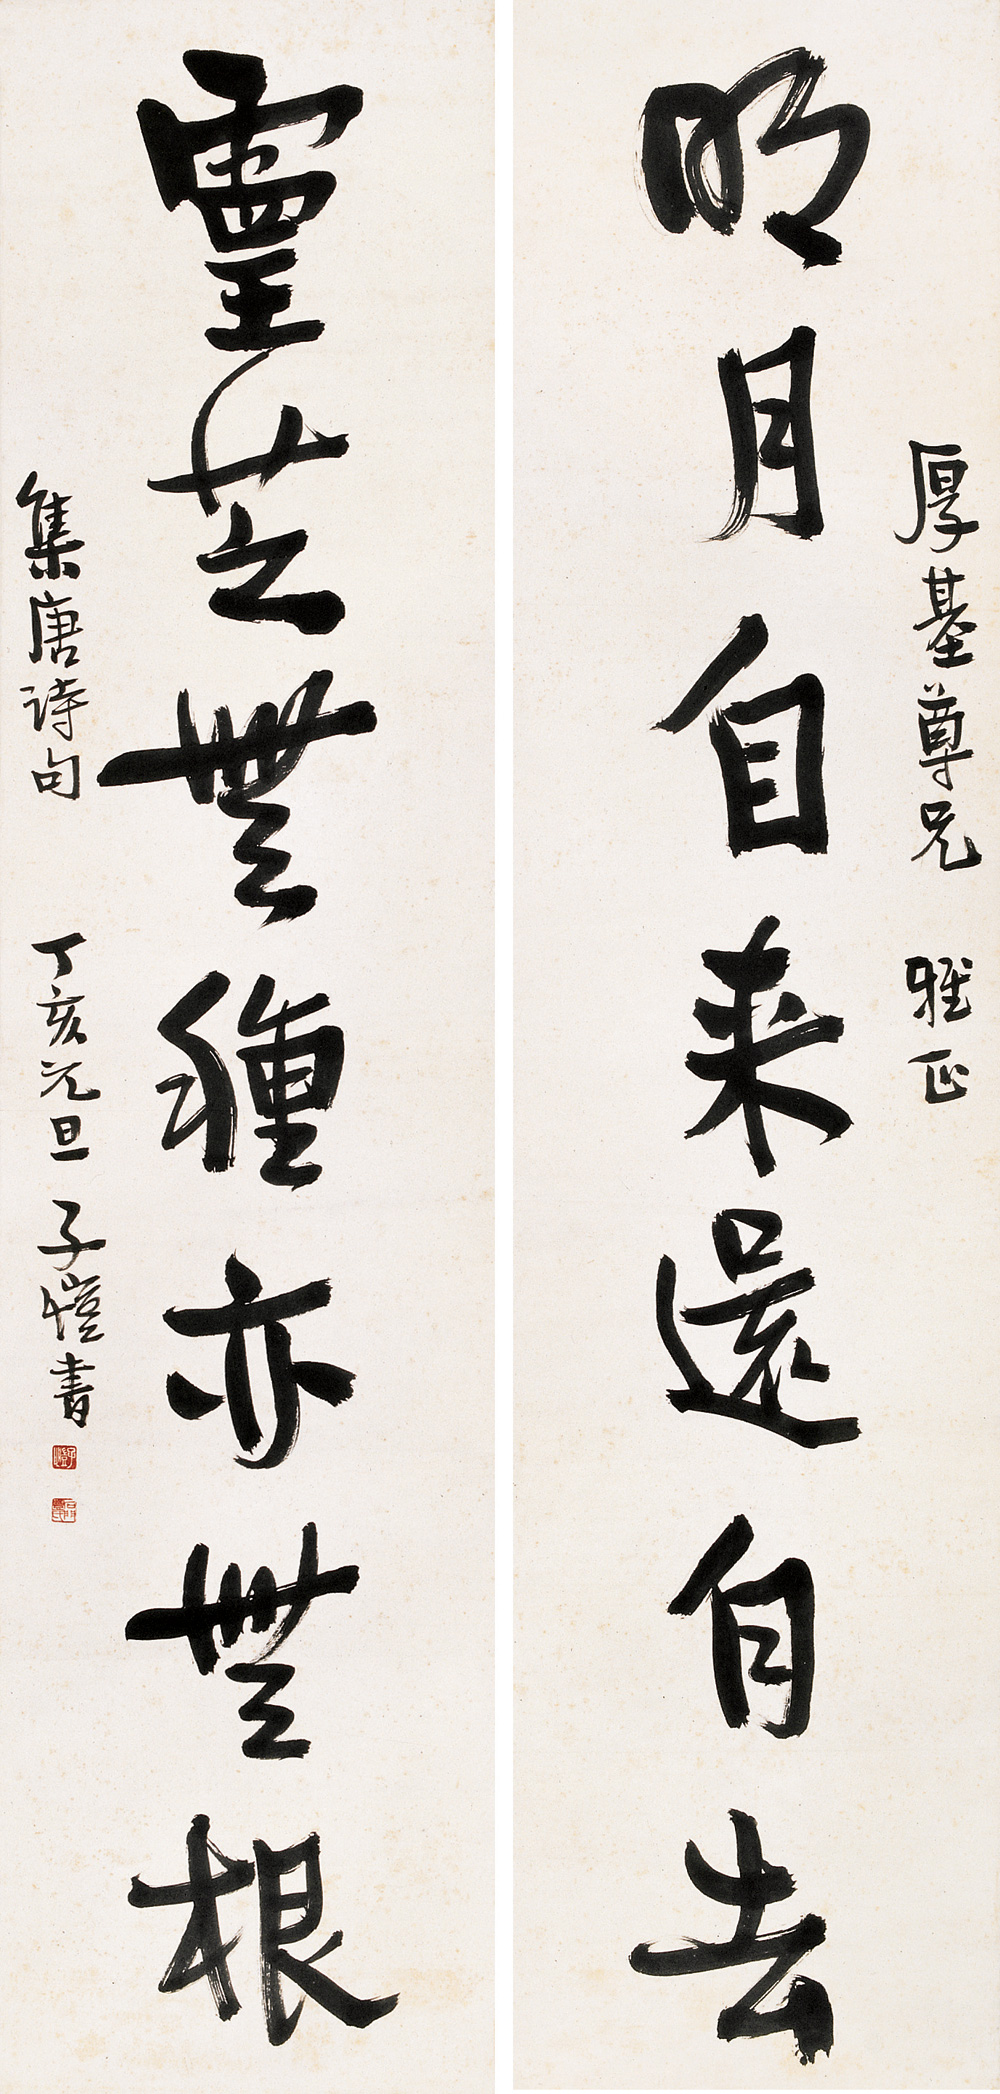 厚基尊兄 雅正
明月自来還自去
靈芝無種亦無根
集唐诗句 丁亥元旦 子愷書